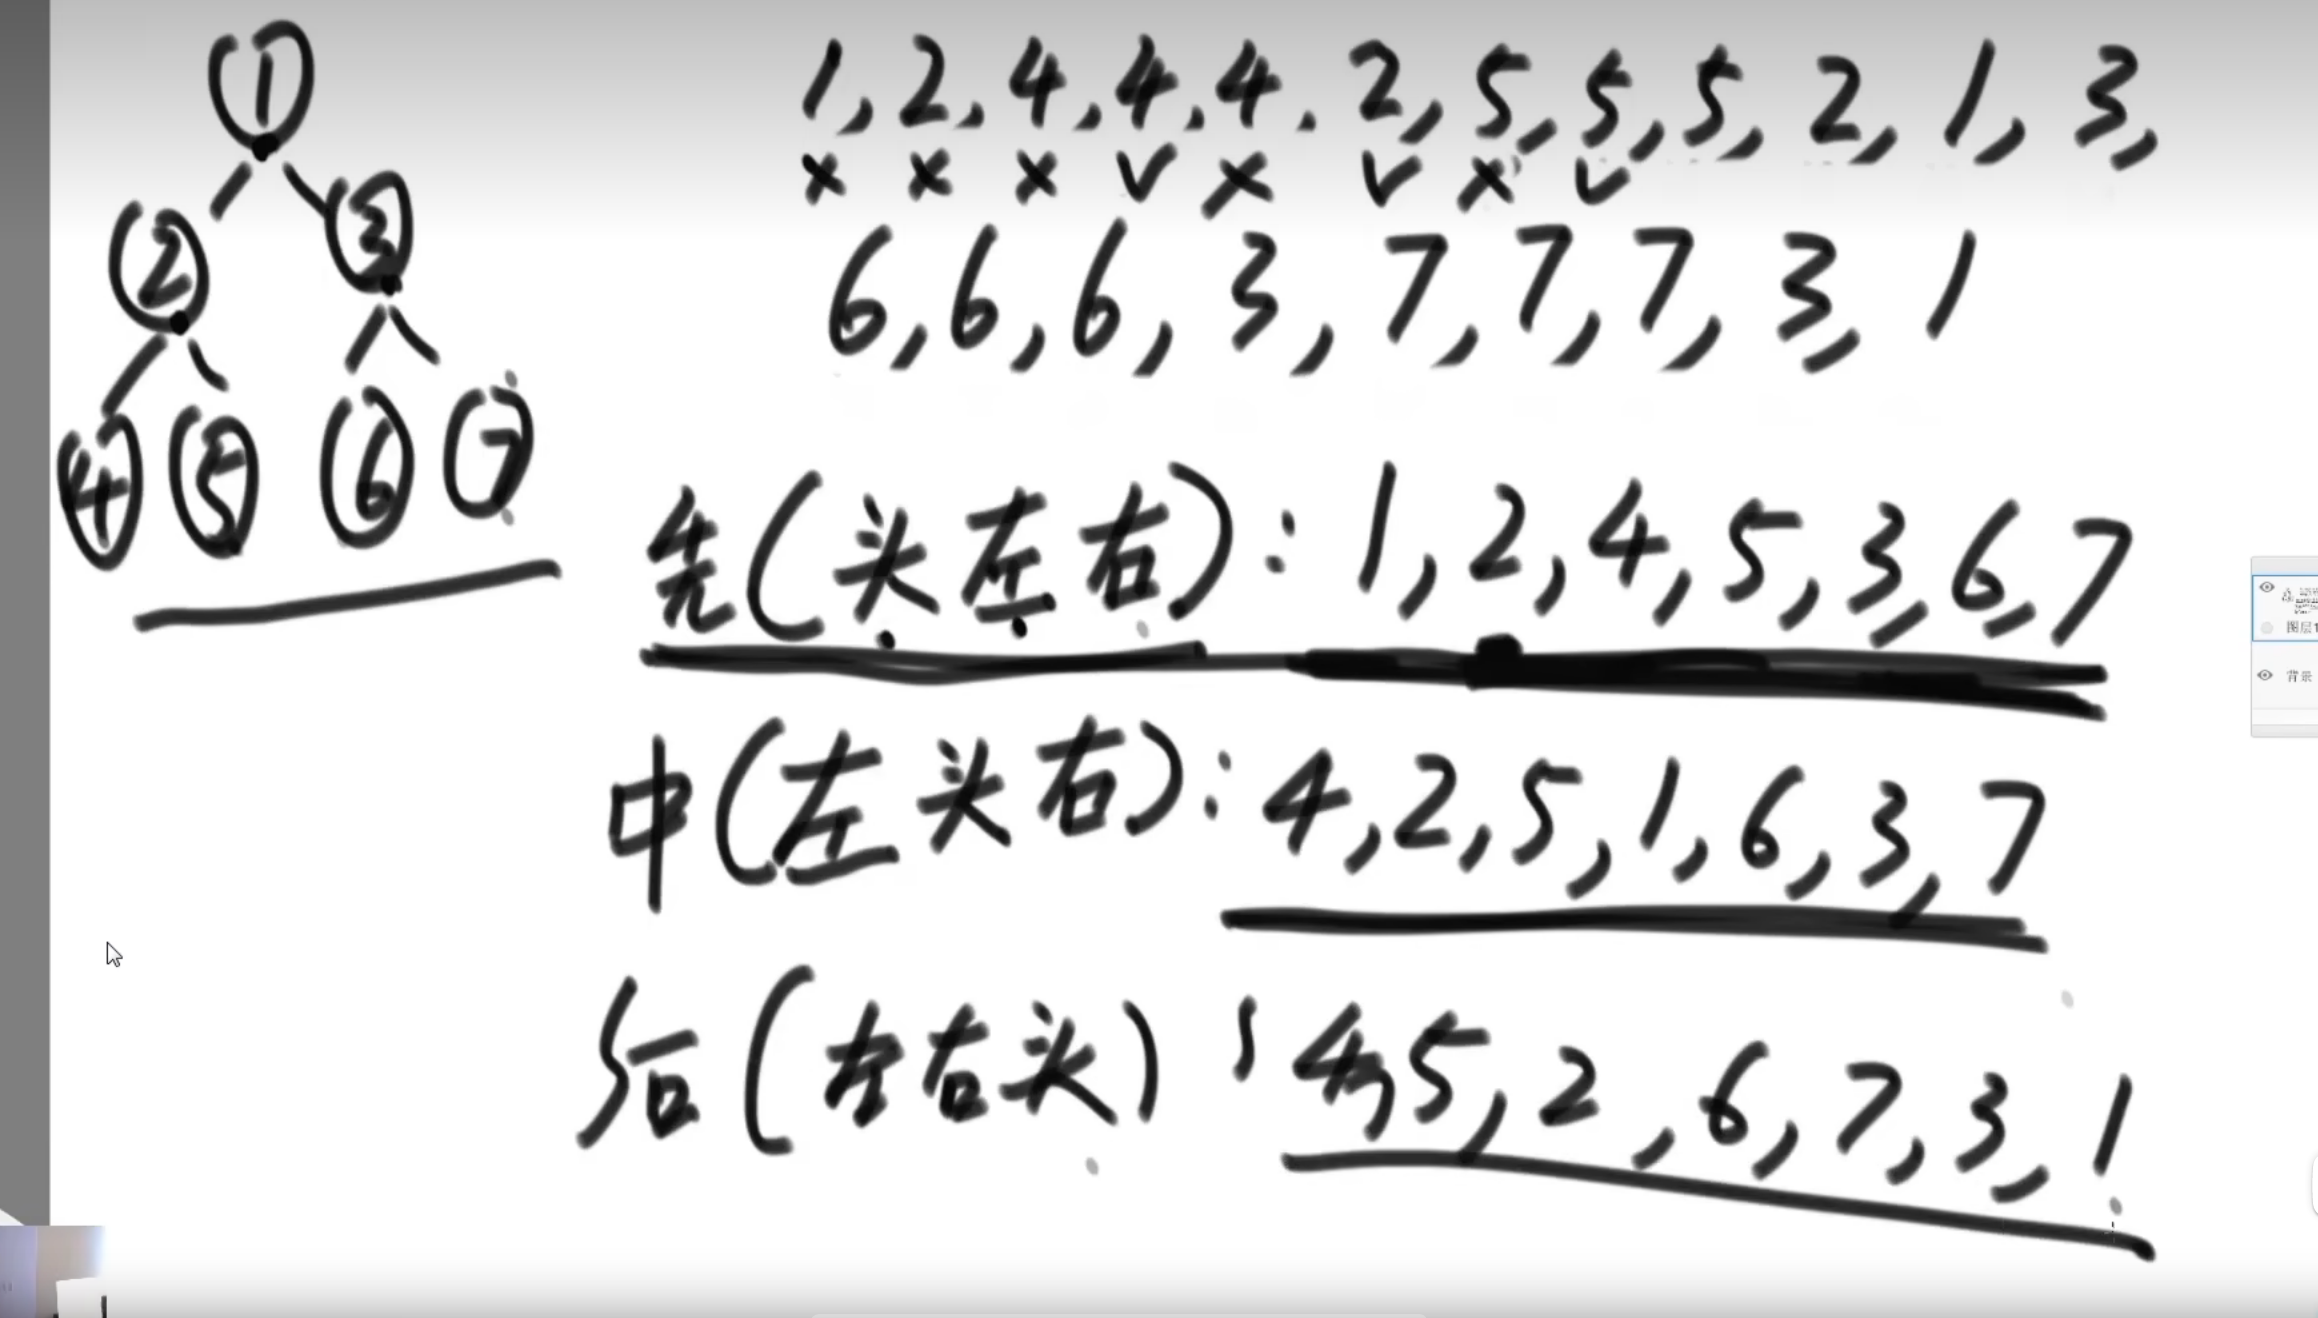 1
2 3
4 5 6 7
1, 2, 4, 4, 4, 2, 5, 5, 5, 2, 1, 3,
x x x v x v x v
6, 6, 6, 3, 7, 7, 7, 3, 1
先(头左右): 1, 2, 4, 5, 3, 6, 7
中(左头右): 4, 2, 5, 1, 6, 3, 7
后(左右头): 4, 5, 2, 6, 7, 3, 1
图层1
背景